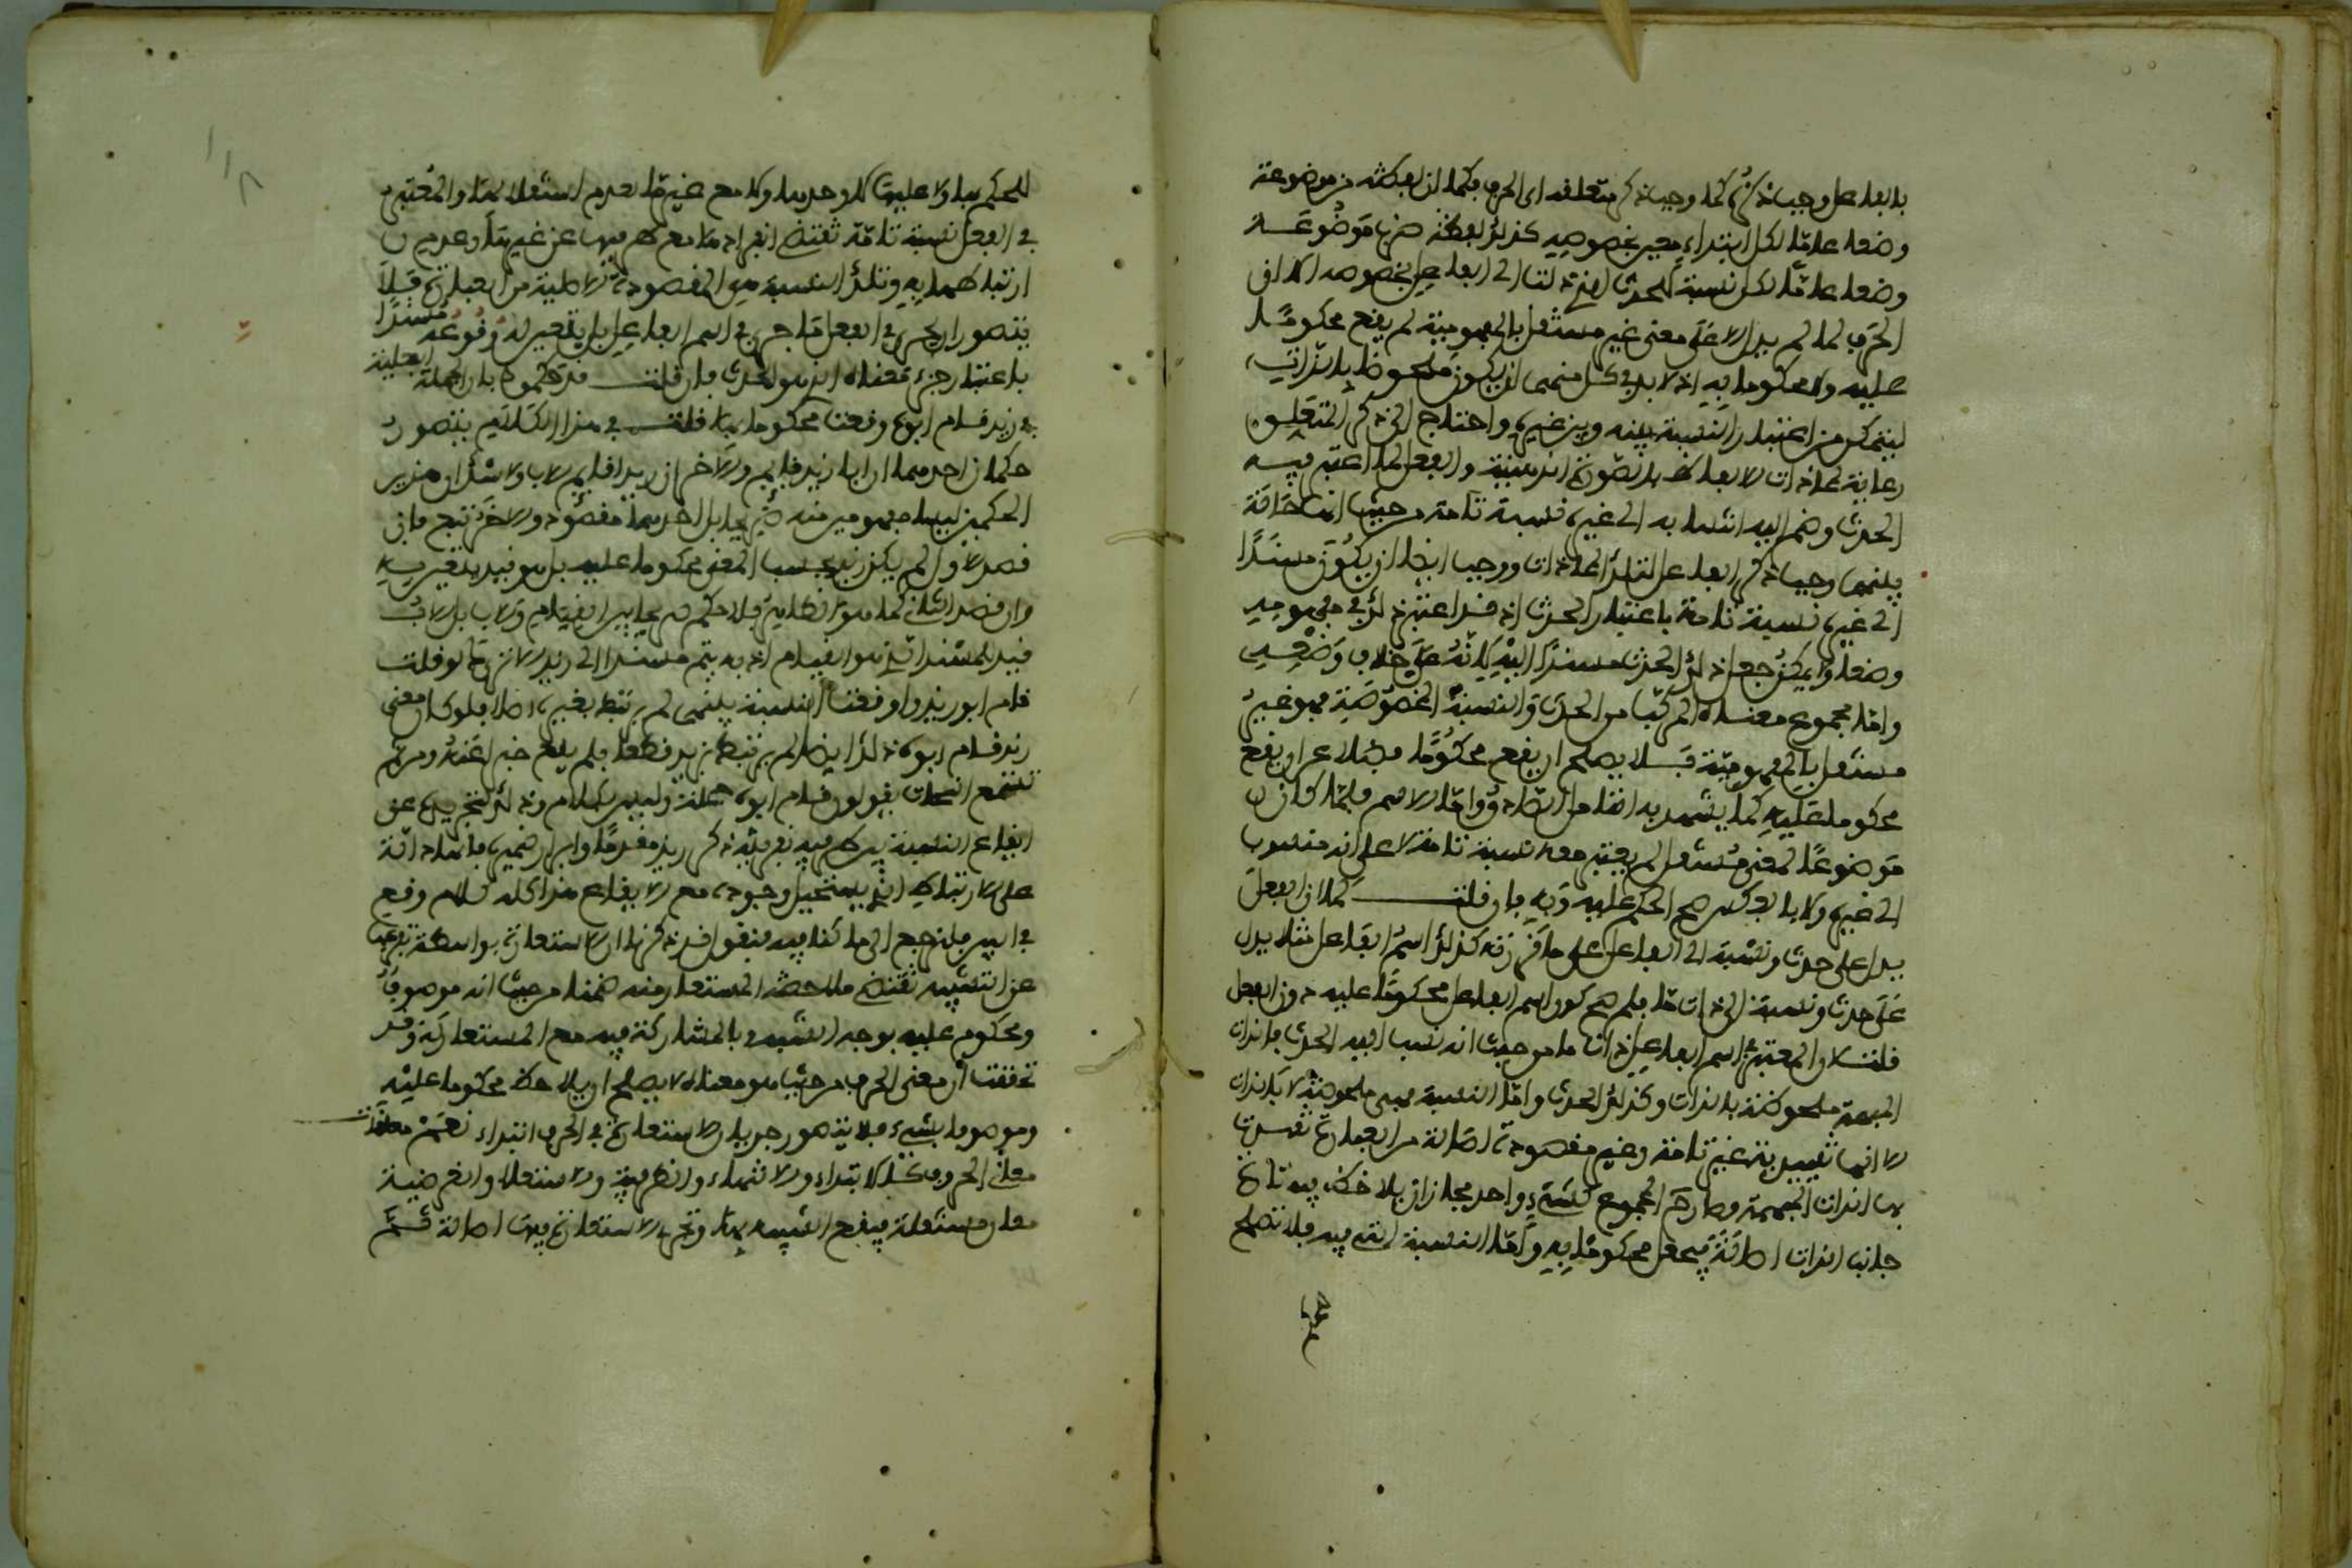 بالفاعل وجب ذكره كما وجب ذكر متعلقه اى الحرف فكما ان لفظة من موضوعة
وضعا عاما لكل ابتداء معين بخصوصه كذلك لفظة ضرب موضوعة
وضعا عاما لكل نسبة للحدث الذى دلت الى الفاعل بخصوصه الا ان
الحرف لما لم يدل الا على معنى غير مستقل بالمفهومية لم يقع محكوما
عليه ولا محكوما به اذ لا بد فى كل منهما ان يكون ملحوظا بالذات
ليتمكن من اعتبار النسبة بينه وبين غيره واحتاج الى ذكر المتعلق
رعاية لمحاذات الالفاظ بالصور الذهنية والفعل لما اعتبر فيه
الحدث وضم اليه انتسابه الى غيره نسبة تامة من حيث انها حالة
بينهما وجب ذكر الفاعل لتلك المحاذات ووجب ايضا ان يكون مسندا
الى غيره نسبة تامة باعتبار الحدث اذ قد اعتبر ذلك فى مفهومه
وضعا ولا يمكن جعل ذلك الحدث مسندا اليه لانه على خلاف وضعه
واما مجموع معناه المركب من الحدث والنسبة المخصوصة فهو غير
مستقل بالمفهومية فلا يصلح ان يقع محكوما به فضلا عن ان يقع
محكوما عليه كما يشهد به التامل الصادق واما الاسم فلما كان
موضوعا لمعنى مستقل لم يعتبر معه نسبة تامة لا على انه منسوب
الى غيره ولا بالعكس صح الحكم عليه وبه فان قلت كما ان الفعل
يدل على حدث ونسبة الى الفاعل على ما قررته كذلك اسم الفاعل مثلا يدل
على حدث ونسبة الى ذات ما فلم صح كون اسم الفاعل محكوما عليه دون الفعل
قلت لان المعتبر فى اسم الفاعل ذات ما من حيث انه نسب اليه الحدث فالذات
المبهمة ملحوظة بالذات وكذلك الحدث واما النسبة فهى ملحوظة لا بالذات
الا انها تقييدية غير تامة وغير مقصودة اصالة من العبارة تقيدت
بها الذات المبهمة وصار المجموع كشىء واحد فجاز ان يلاحظ فيه تارة
جانب الذات اصالة فيجعل محكوما به واما النسبة التى فيه فلا تصلح
للحكم بها ولا عليها لا وحدها ولا مع غيرها لعدم استقلالها والمعتبر
فى الفعل نسبة تامة تقتضى انفرادها مع طرفيها عن غيرها وعدم
ارتباطها به وتلك النسبة هى المقصودة الاصلية من العبارة فلا
يتصور ان يجرى فى الفعل ما جرى فى اسم الفاعل بل يتعين له وقوعه مسندا
باعتبار جزء معناه الذى هو الحدث فان قلت قد حكموا بان الجملة الفعلية
فى زيد قام ابوه وقعت محكوما بها قلت فى هذا الكلام يتصور
حكمان احدهما ان ابا زيد قايم والاخر ان زيدا قايم الاب ولا شك ان هذين
الحكمين ليسا بمفهومين منه صريحا بل احدهما مقصود والاخر تبع فان
قصد الاول لم يكن زيد بحسب المعنى محكوما عليه بل هو قيد يتعين به
وان قصد الثانى كما هو الظاهر فلا حكم صريحا بين القيام والاب بل الاب
قيد للمسند الذى هو القيام اذ به يتم مسندا الى زيد الا ترى انك لو قلت
قام ابو زيد واوقعت النسبة بينهما لم يرتبط بغيره اصلا فلو كان معنى
زيد قام ابوه ذلك ايضا لم يرتبط بزيد قطعا فلم يقع خبرا عنه ومن ثم
تسمع النحات يقولون قام ابوه جملة وليس بكلام وذلك لتجريده عن
ايقاع النسبة بين طرفيه بقرينة ذكر زيد مقدما وايراد ضميره فانها دالة
على الارتباط الذى يستحيل وجوده مع الايقاع هذا كله كلام وقع
فى البين فلنرجع الى ما كنا فيه فنقول قد ذكر ان الاستعارة بواسطة تفرعها
عن التشبيه تقتضى ملاحظة المستعار منه ضمنا من حيث انه موصوف
ومحكوم عليه بوجه الشبه وبالمشاركة فيه مع المستعار له وقد
تحققت ان معنى الحرف من حيث هو معناه لا يصلح ان يلاحظ محكوما عليه
وموصوفا بشىء فلا يتصور جريان الاستعارة فى الحرف ابتداء نعم متعلقات
معانى الحروف كالابتداء والانتهاء والظرفية والاستعلاء والغرضية
معان مستقلة فيقع التشبيه بها وتجرى الاستعارة فيها اصالة ثم